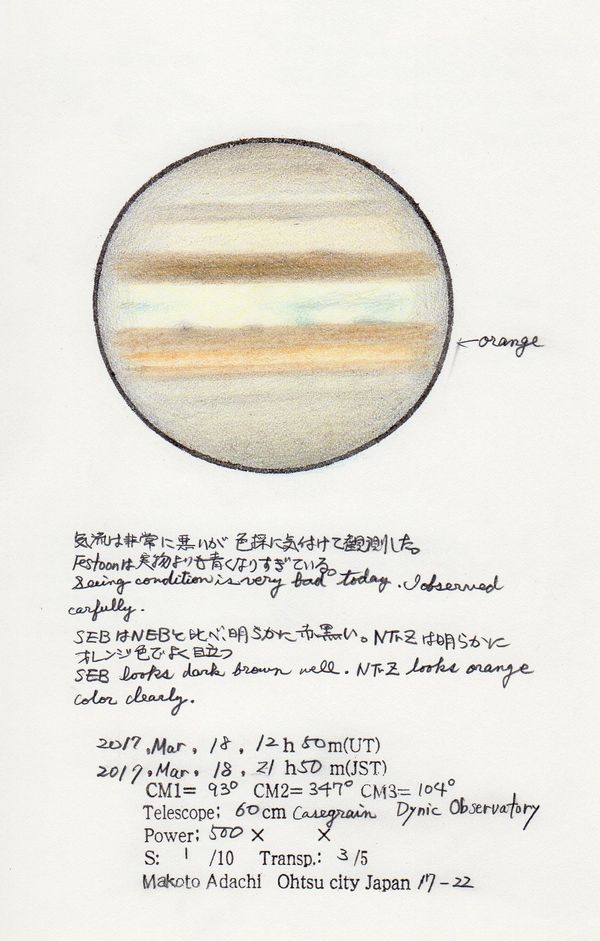 ←orange
気流は非常に悪いが 色採に気付けて観測した。
Festoonは実物よりも青くなりすぎている。
Seeing condition is very bad today. I observed
carfully.
SEBはNEBと比べ明らかに赤黒い。NTrZは明らかに
オレンジ色でよく目立つ
SEB looks dark brown well. NTrZ looks orange
color clearly.
2017, Mar, 18, 12h 50m(UT)
2017, Mar, 18, 21 h50 m(JST)
CM1= 93° CM2= 347° CM3= 104°
Telescope; 60cm Casegrain Dynic Observatory
Power; 500 × ×
S: 1 /10 Transp.: 3/5
Makoto Adachi Ohtsu city Japan 17-22